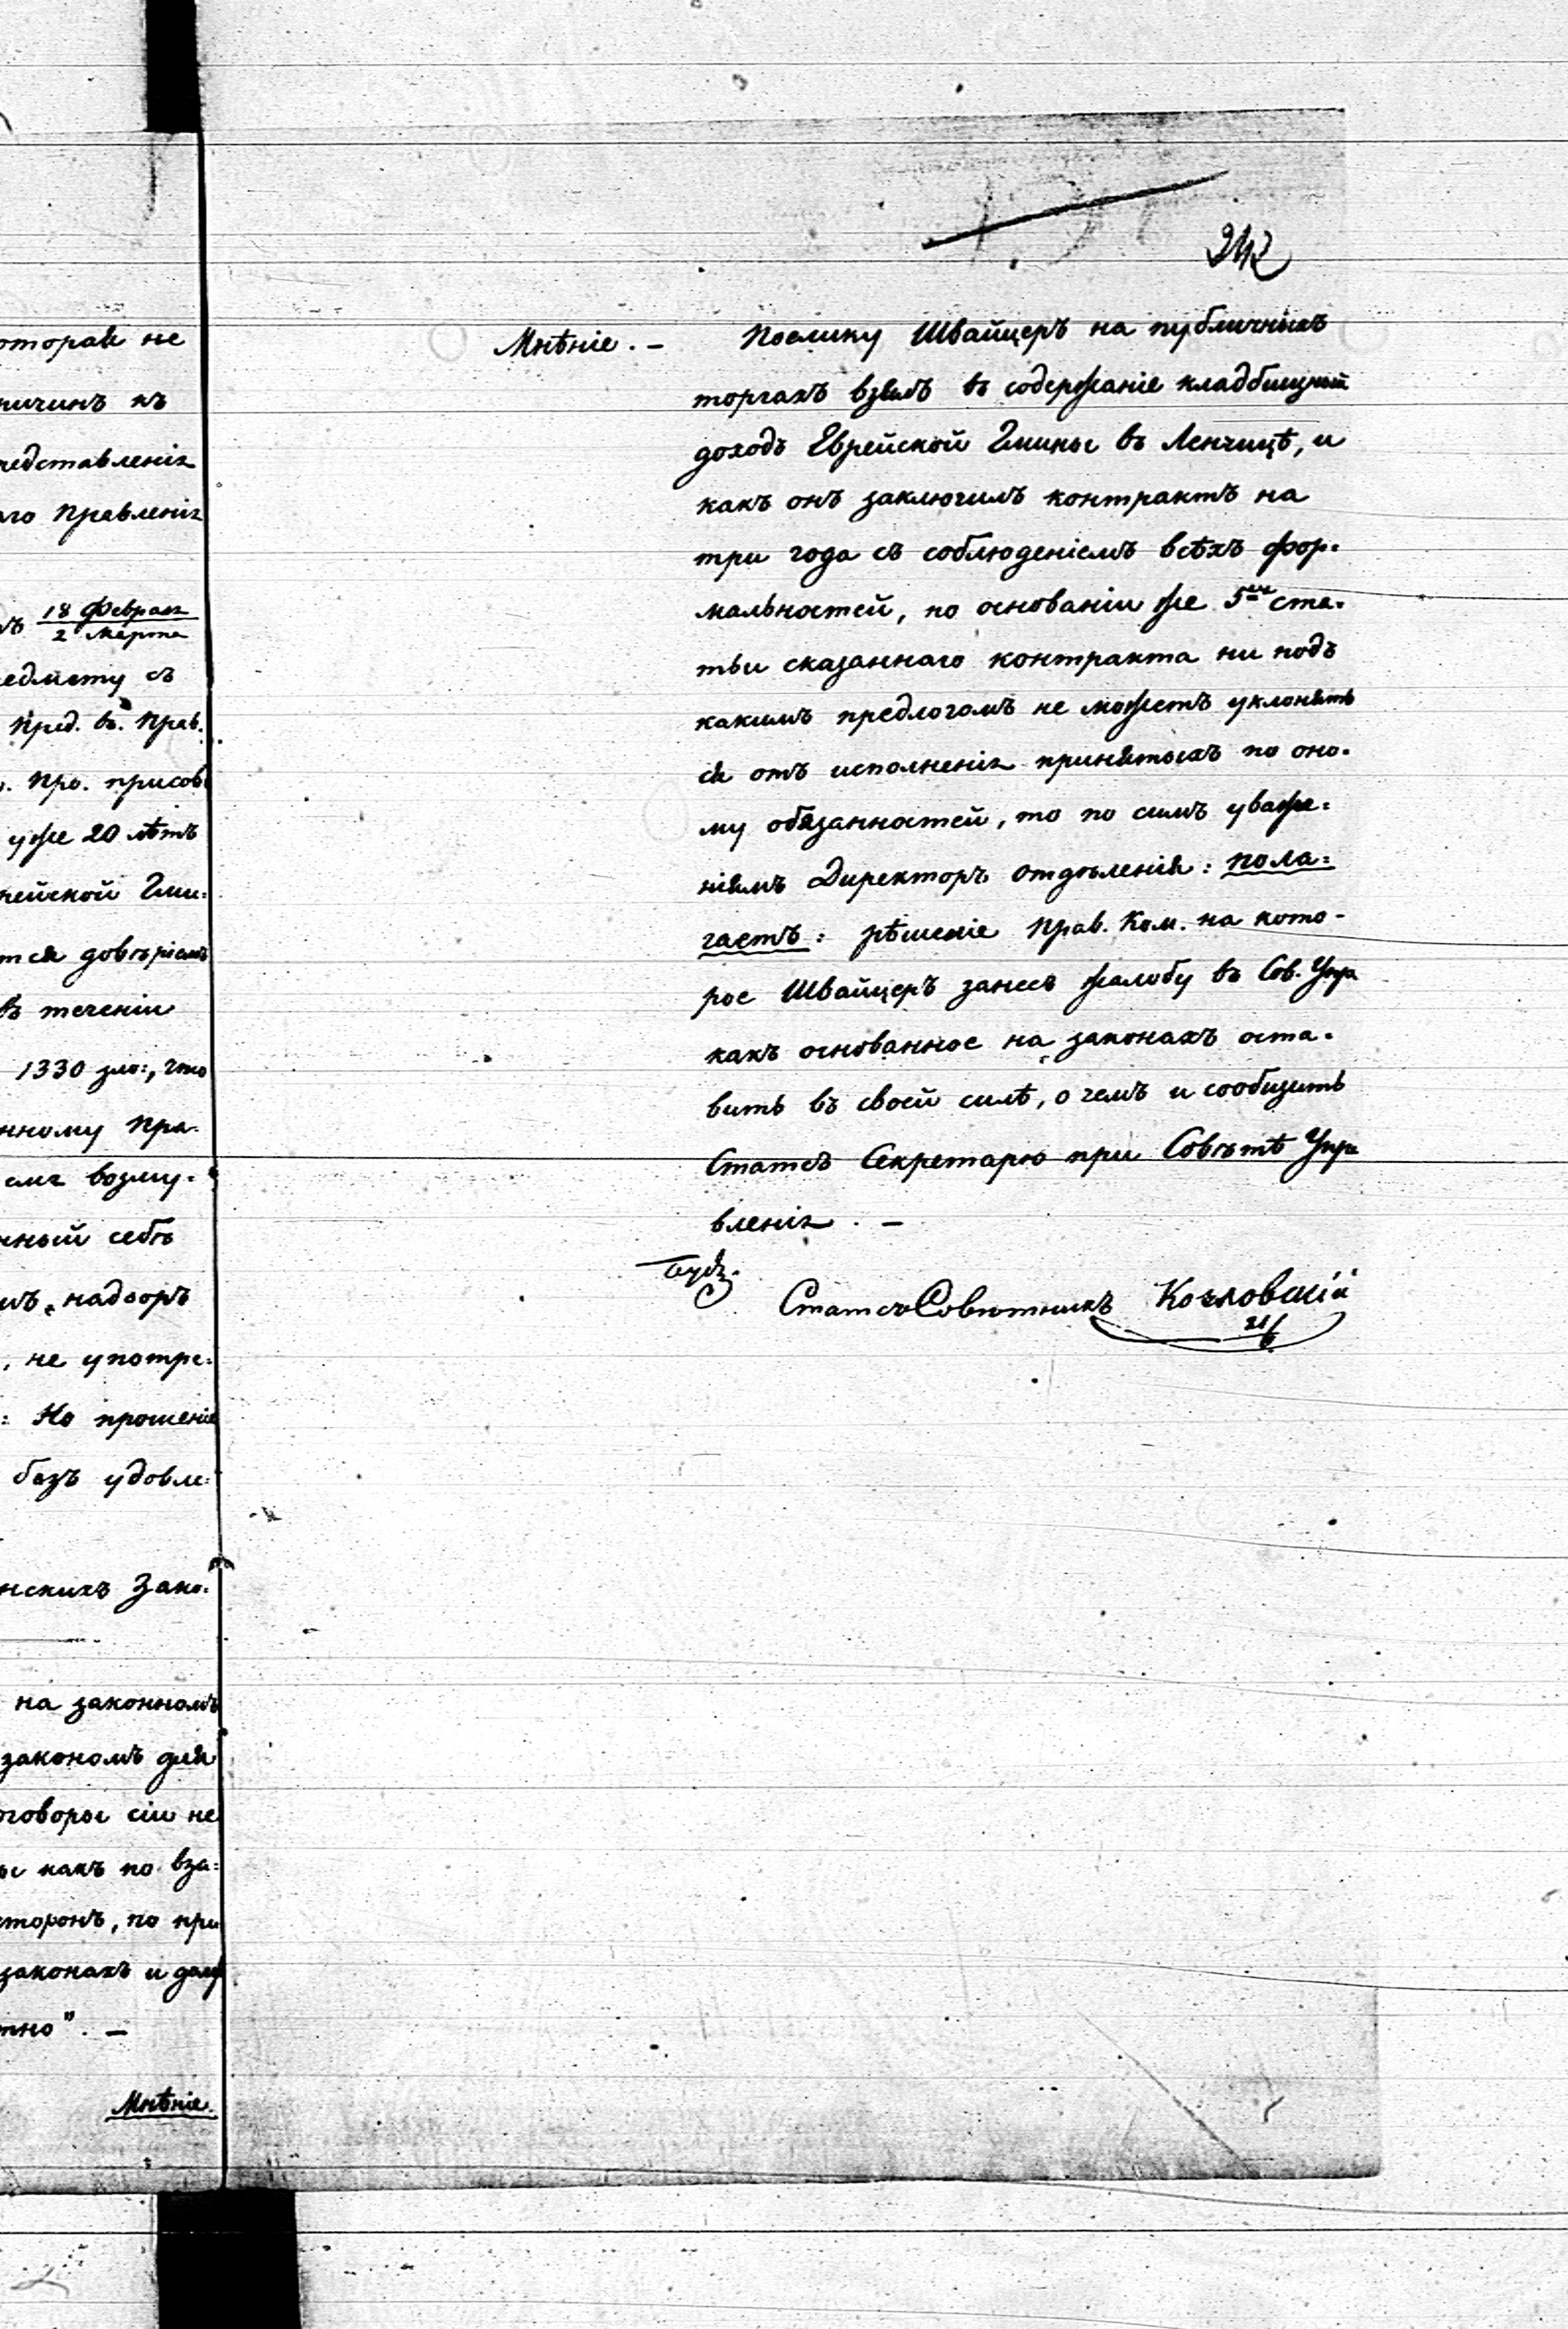 оторая не
ричинъ къ
редставленія
аго Правленія
18 Февраля
2 Марта
едмету съ
Пред. въ. Прав.
. Про. присов
уже 20 лѣтъ
рейской Гми:
тся довѣріемъ
въ теченіи
1330 зло:, что
нному Пра-
возму-
нный себѣ
надзоръ
, не употре:
: Но прошеніе
безъ удовле:
нскихъ Зако:
на законномъ
закономъ для
оговоры сіи не
ы какъ по вза:
сторонъ, по при
законахъ и
тно". —
Мнѣніе.
242
Мнѣніе. — Поелику Швайцеръ на публичныхъ
торгахъ взялъ въ содержаніе кладбищный
доходъ Еврейской Гмины въ Ленчицѣ, и
какъ онъ заключилъ контрактъ на
три года съ соблюденіемъ всѣхъ фор-
мальностей, по основаніи же 5ой ста-
тьи сказаннаго контракта ни подъ
какимъ предлогомъ не можетъ уклонять
ся отъ исполненія принятыхъ по оно-
му обязанностей, то по симъ уваже:
ніямъ Директоръ Отдѣленія: пола:
гаетъ: рѣшеніе Прав. Ком. на кото-
рое Швайцеръ занесъ жалобу въ Сов. Упра
какъ основанное на законахъ оста-
вить въ своей силѣ, о чемъ и сообщить
Статсъ Секретарю при Совѣтѣ Упра
вленія. —
Статсъ Совѣтникъ Козловскій